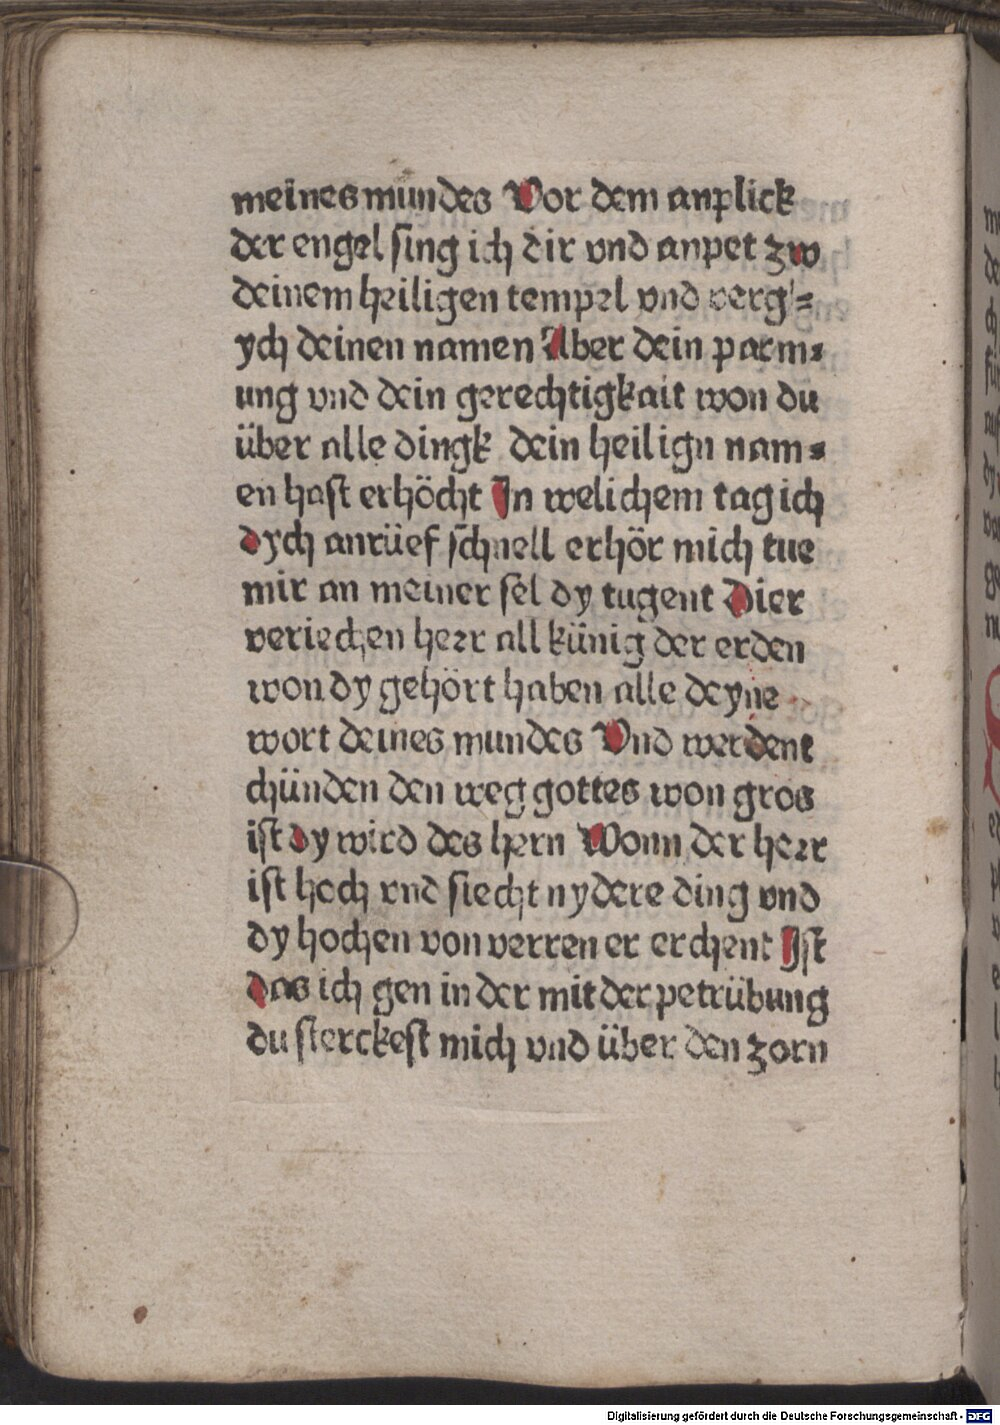 meines mundes Vor dem anplick
der engel sing ich dir vnd anpet zw
deinem heiligen tempel vnd verg'=
ych deinen namen Über dein parm=
ung vnd dein gerechtigkait won du
über alle dingk dein heilign nam=
en hast erhöcht In welichem tag ich
dych anrüef schnell erhör mich tue
mir an meiner sel dy tugent Dier
veriechen herr all künig der erden
won dy gehört haben alle deyne
wort deines mundes Vnd werdent
chünden den weg gottes won gros
ist dy wird des hern Wonn der herr
ist hoch vnd siecht nydere ding vnd
dy hochen von verren er erchent Ist
das ich gen in der mit der petrübung
du sterckest mich vnd über den zorn
Digitalisierung gefördert durch die Deutsche Forschungsgemeinschaft - DFG